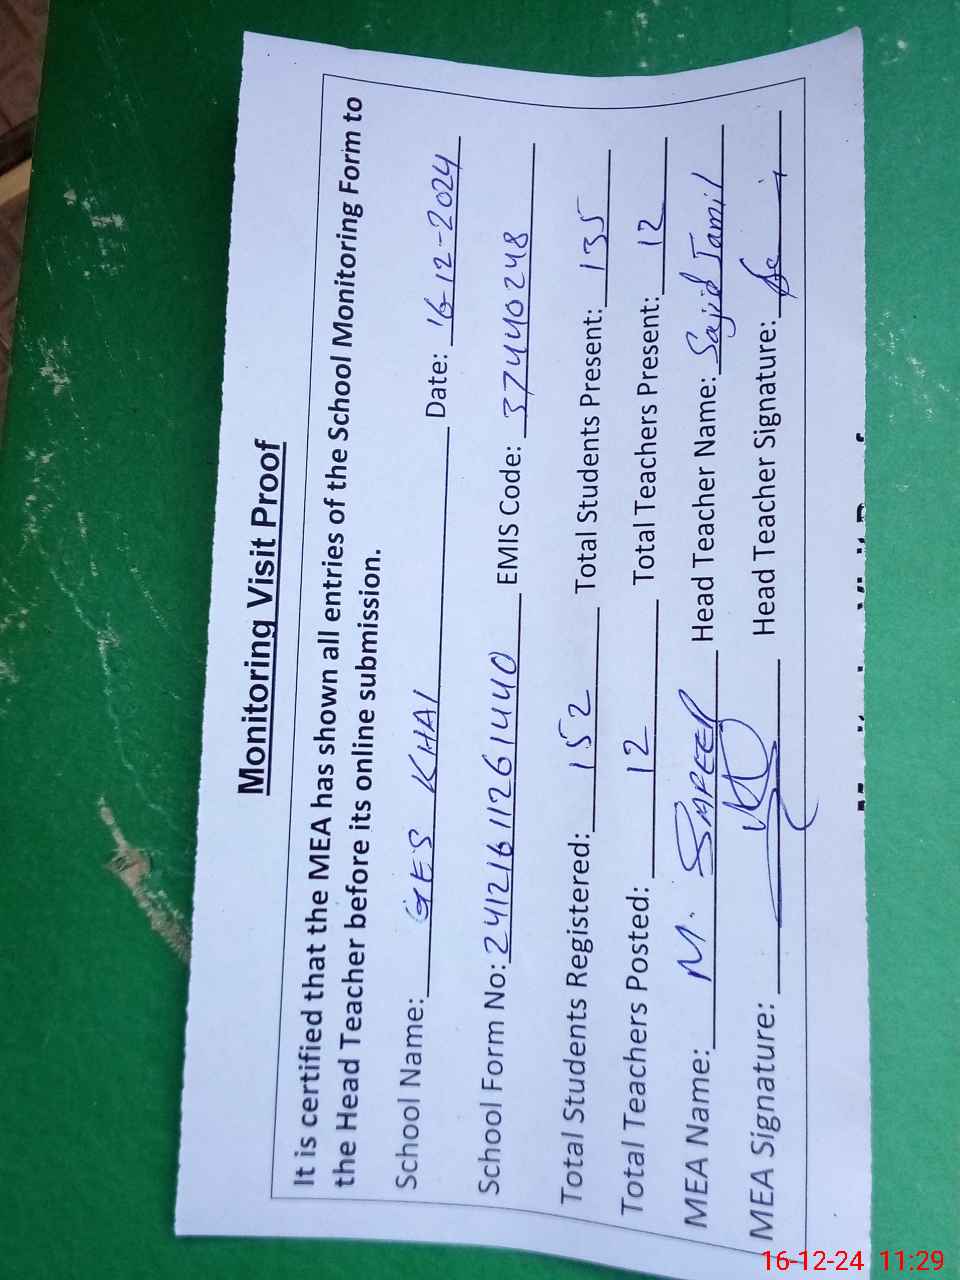 Monitoring Visit Proof
It is certified that the MEA has shown all entries of the School Monitoring Form to
the Head Teacher before its online submission.
School Name: GES KHAI Date: 16-12-2024
School Form No: 241216112614440 EMIS Code: 37440248
Total Students Registered: 152 Total Students Present: 135
Total Teachers Posted: 12 Total Teachers Present: 12
MEA Name: M. SAFEER Head Teacher Name: Sajid Jamil
MEA Signature: Head Teacher Signature:
16-12-24 11:29